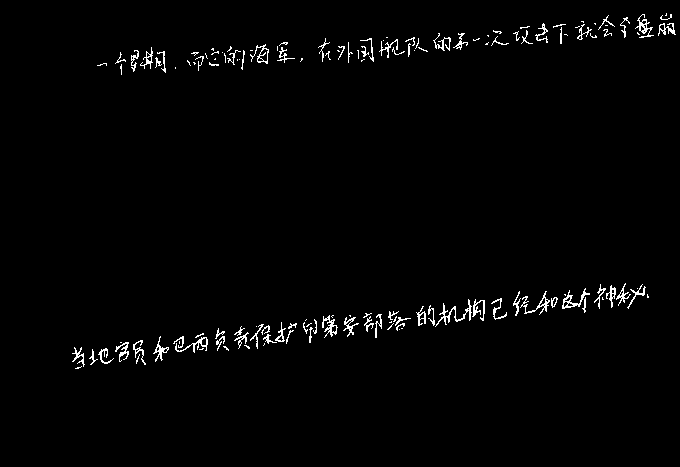 一个星期，而它的海军，在外国舰队的第一次攻击下就会全盘崩
当地官员和巴西负责保护印第安部落的机构已经和这个神秘